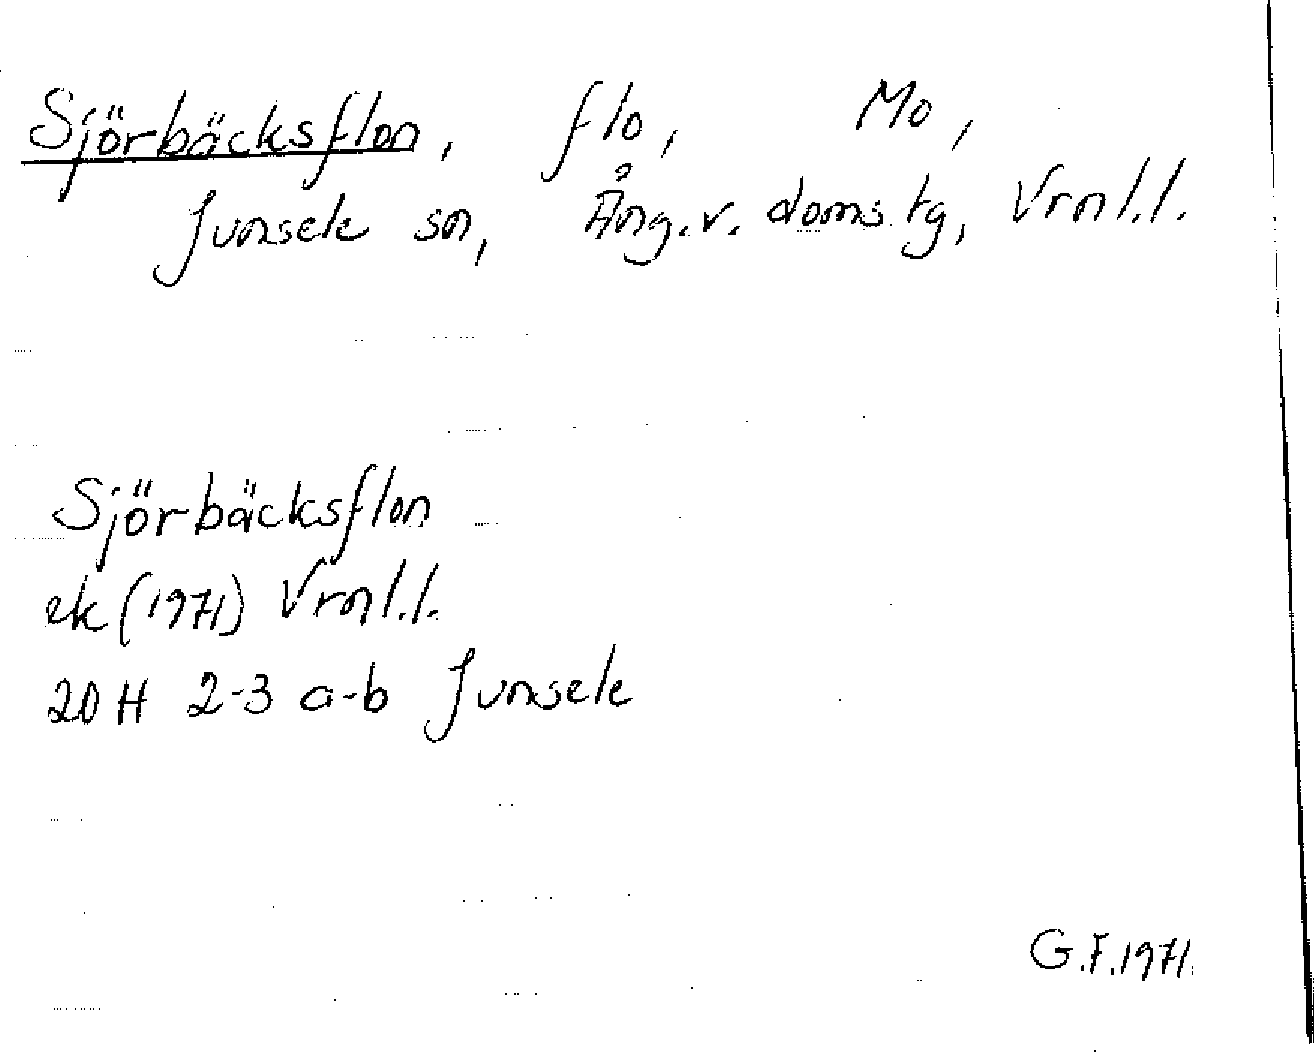 Sjörbäcksflon, flo, Mo,
Junsele sn, Ång.v. doms.tg, Vrnl.l.
Sjörbäcksflon
ek (1971) Vrnl.l.
20 H 2-3 a-b Junsele
G.F.1971.